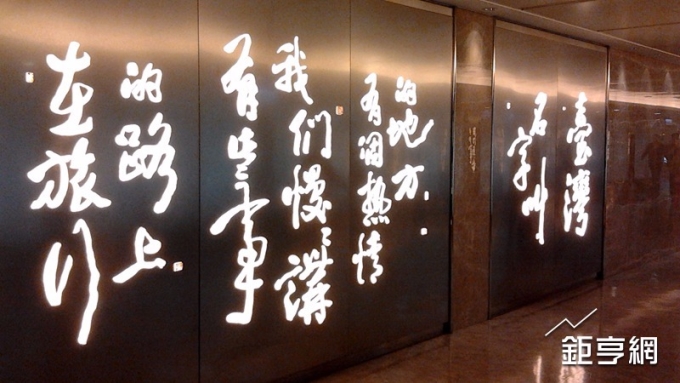 在旅行
的路上
有些事
我们慢々講
有個热情
的地方
名字叫
臺灣
鉅亨網